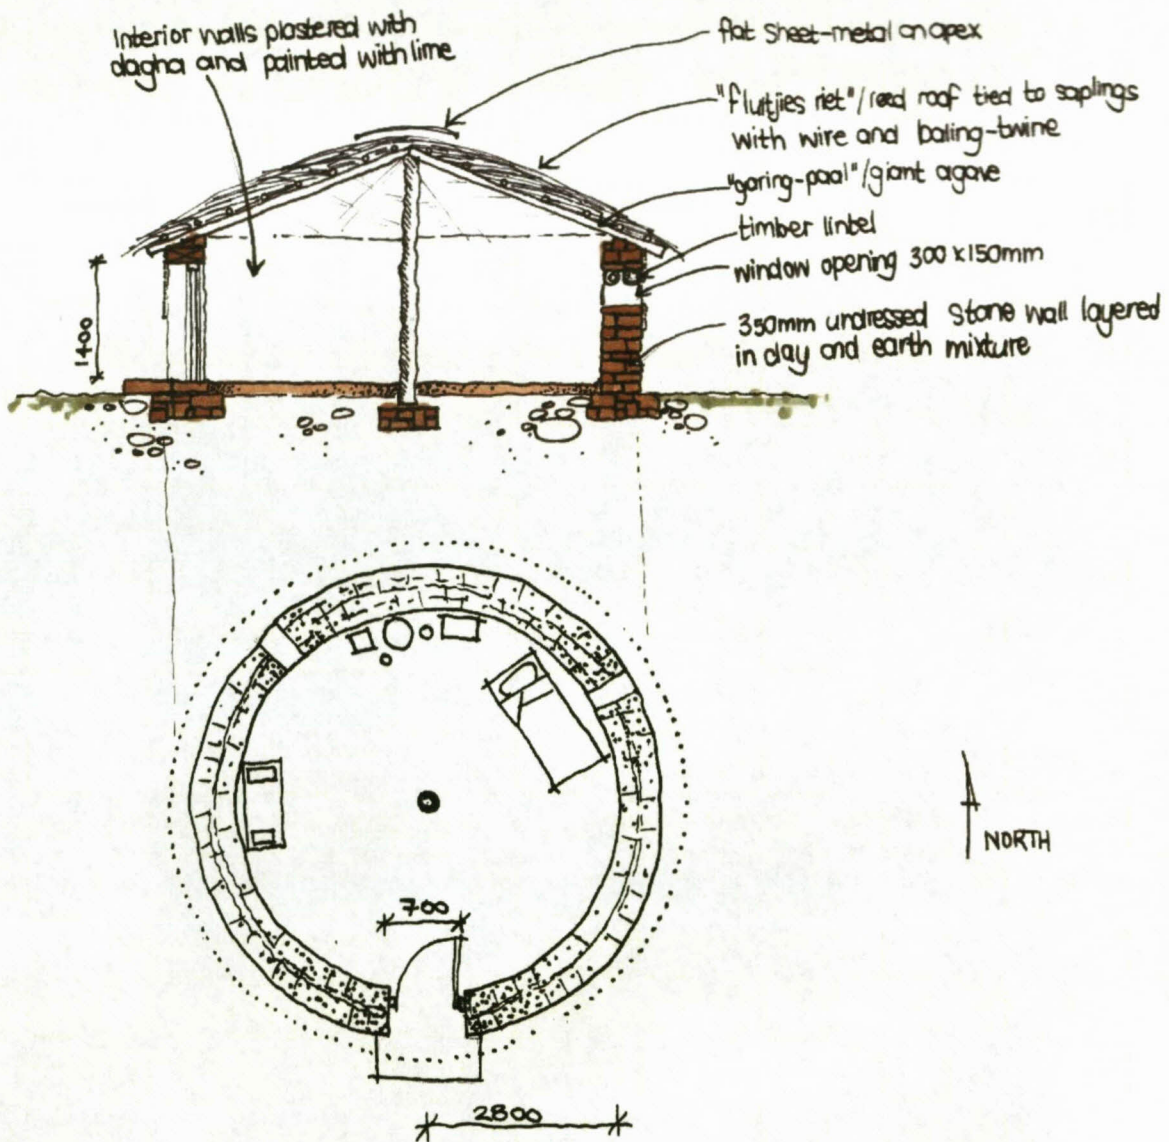 Interior walls plastered with
dagha and painted with lime
flat sheet-metal on apex
"fluitjies riet"/reed roof tied to saplings
with wire and baling-twine
"garing-paal"/giant agave
timber lintel
window opening 300 x 150mm
350mm undressed stone wall layered
in clay and earth mixture
1400
NORTH
700
2800